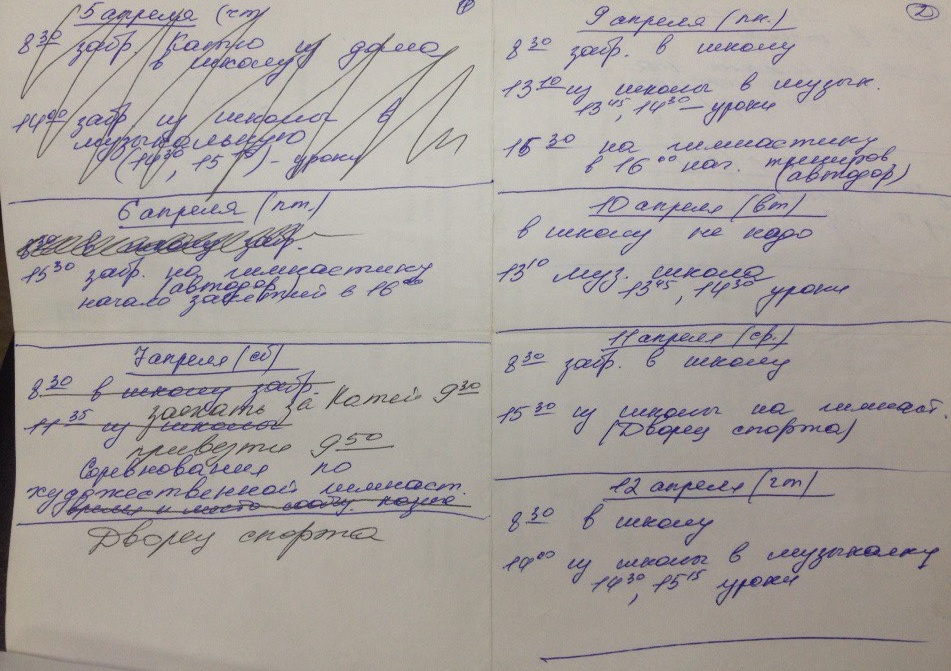 1
5 апреля (чт)
8 30 забр Катю из дома
в школу
14 00 забр из школы в
музыкальную
(14 30, 15 15) - уроки
6 апреля (пт.)
забр.
15 30 забр. на гимнастику
(автодор)
начало занятий в 16 00
7 апреля (сб)
8 30 в школу забр.
заехать за Катей 9 30
11 35 из школы
привезти 9 50
Соревнования по
художественной гимнаст.
время и место сообщ. позже
Дворец спорта
2
9 апреля (пн.)
8 30 забр. в школу
13 10 из школы в музык.
13 45, 14 30 - уроки
15 30 на гимнастику
в 16 00 нач. трениров
(автодор)
10 апреля (вт)
в школу не надо
13 10 муз. школа
13 45, 14 30 уроки
11 апреля (ср.)
8 30 забр. в школу
15 30 из школы на гимнаст
(Дворец спорта)
12 апреля (чт)
8 30 в школу
14 00 из школы в музыкалку
14 30, 15 15 уроки